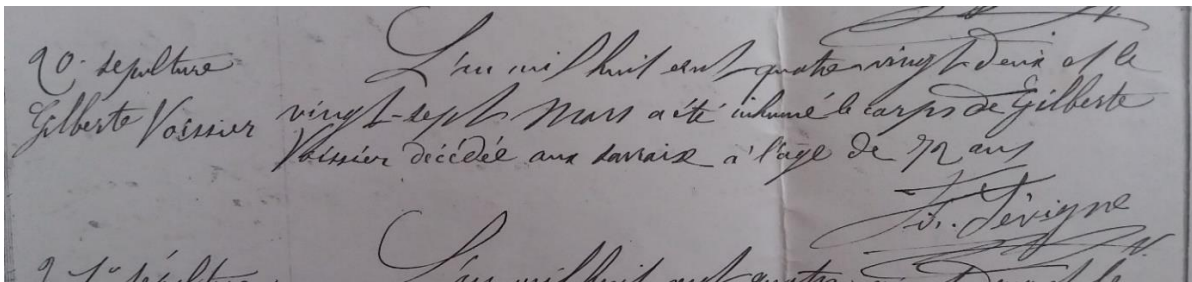 20. sepulture
Gilberte Voissier
L'an mil huit cent quatre-vingt-deux et le
vingt-sept Mars a été inhumé le corps de Gilberte
Voissier décédée aux à l'age de 72 ans
Sévigne
21e sépulture
L'an mil huit cent quatre